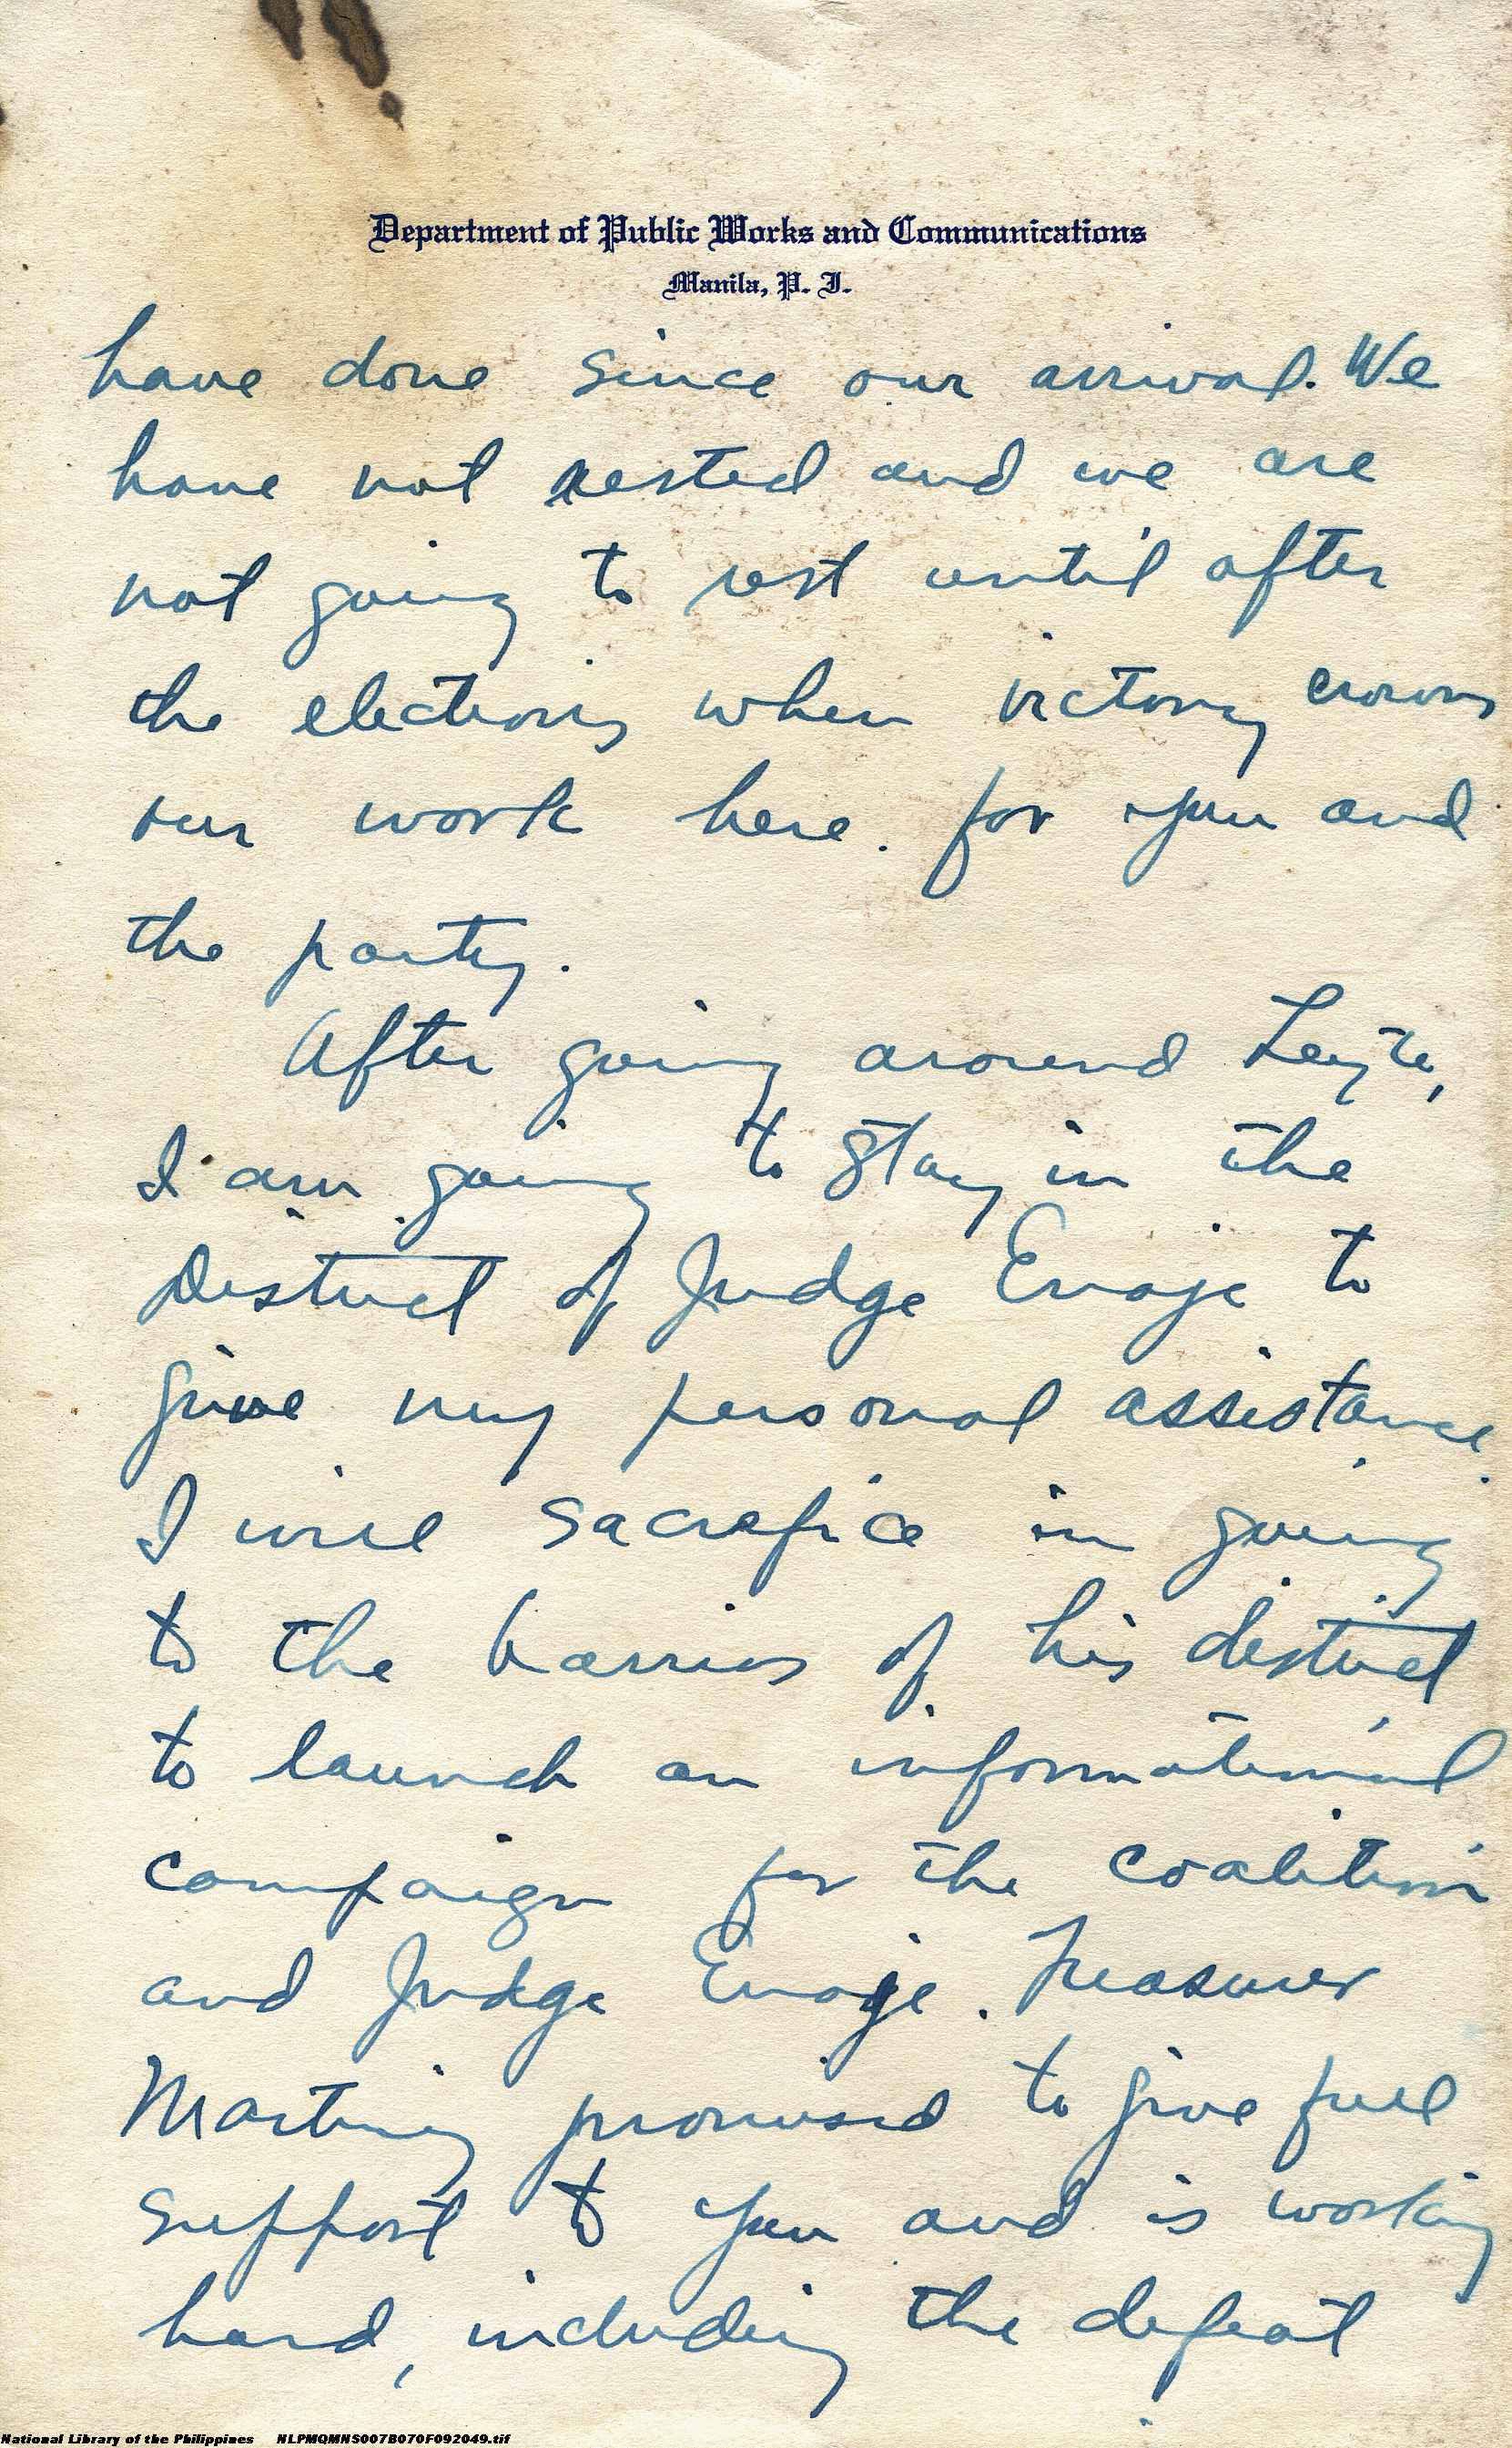 Department of Public Works and Communications
Manila, P. I.
have done since our arrival. We
have not rested and we are
not going to rest until after
the elections when victory crowns
our work here for you and
the party.
After going around Leyte,
I am going to stay in the
District of Judge Enage to
give my personal assistance.
I will sacrifice in going
to the barrios of his district
to launch an informational
campaign for the coalition
and Judge Enage. Treasurer
Martinez promised to give full
support to you and is working
hard, including the defeat
National Library of the Philippines NLPMQMNS007B070F092049.tif